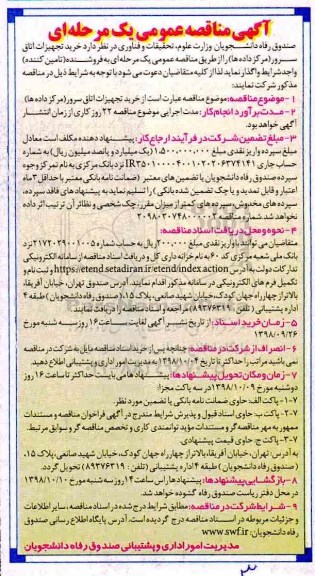 آگهی مناقصه عمومی یک مرحله ای
صندوق رفاه دانشجویان وزارت علوم، تحقیقات و فناوری در نظر دارد خرید تجهیزات اتاق
سرور (مرکز داده ها) را از طریق مناقصه عمومی یک مرحله ای به فروشنده (تامین کننده)
واجد شرایط واگذار نماید لذا از کلیه متقاضیان دعوت می شود با توجه به شرایط ذیل در مناقصه
مذکور شرکت نمایند:
۱- موضوع مناقصه: موضوع مناقصه عبارت است از خرید تجهیزات اتاق سرور (مرکز داده ها)
۲- مدت برآورد انجام کار: مدت اجرایی موضوع مناقصه ۲۲ روز کاری از زمان انتشار
آگهی خواهد بود.
۳- مبلغ تضمین شرکت در فرآیند ارجاع کار: پیشنهاد دهنده مکلف است معادل
مبلغ سپرده واریز نقدی مبلغ ۱،۵۰۰،۰۰۰،۰۰۰ (یک میلیارد و پانصد میلیون ریال) به شماره
حساب جاری نزد بانک مرکزی به نام تمرکز وجوه
سپرده صندوق رفاه دانشجویان یا تضمین های معتبر (ضمانت نامه بانکی معتبر با حداقل ۳ ماه
اعتبار و قابل تمدید و یا چک تضمین شده بانکی) را تسلیم نماید به پیشنهاد های فاقد سپرده،
سپرده های مخدوش، سپرده های کمتر از میزان مقرر، چک شخصی و نظائر آن ترتیب اثر داده
نخواهد شد. شماره مناقصه ۲۰۹۸۰۳۰۷۴۸۰۰۰۰۰۲
۴- نحوه و محل دریافت اسناد مناقصه:
متقاضیان می توانند با واریز نقدی مبلغ ۲۰۰،۰۰۰ ریال به حساب شماره ۲۱۷۲۰۲۹۰۰۱۰۰۵ نزد
بانک ملی شعبه مرکزی کد ۶۰ به نام خزانه داری کل و دریافت اسناد مناقصه از سامانه الکترونیکی
تدارکات دولت به آدرس https://etend.setadiran.ir/etend/index.action و ثبت نام و
تکمیل فرم های الکترونیکی در سامانه مذکور اقدام نمایند. آدرس صندوق: تهران، خیابان آفریقا،
بالاتر از چهارراه جهان کودک، خیابان شهید صانعی، پلاک ۱۵، صندوق رفاه دانشجویان) طبقه ۴
اداره پشتیبانی (تلفن: ۸۹۳۷۶۳۱۹) مراجعه و اسناد مناقصه را دریافت نمایند.
۵- زمان خرید اسناد: از تاریخ نشر آگهی لغایت ساعت ۱۶ روز سه شنبه مورخ
۱۳۹۸/۰۹/۲۶
۶- انصراف از شرکت در مناقصه: چنانچه پس از خرید اسناد مناقصه مایل به شرکت در مناقصه
نمی باشید مراتب را حداکثر تا تاریخ ۱۳۹۸/۱۰/۰۴ به مدیریت امور اداری و پشتیبانی اطلاع دهید.
۷- زمان و مکان تحویل پیشنهادها: پیشنهادها می بایست حداکثر تا ساعت ۱۶ روز
دوشنبه مورخ ۱۳۹۸/۱۰/۰۹ در سه پاکت مجزا:
۷-۱- پاکت الف: حاوی ضمانت نامه بانکی یا تضمین مورد نظر.
۷-۲- پاکت ب: حاوی اسناد قبول و پذیرش شرایط مندرج در آگهی فراخوان مناقصه و مستندات
ممهور به مهر مناقصه گر و مستندات مؤید توانمندی کاری و تخصص مناقصه گر و سوابق مرتبط.
۷-۳- پاکت ج: حاوی قیمت پیشنهادی.
به آدرس: تهران، خیابان آفریقا، بالاتر از چهارراه جهان کودک، خیابان شهید صانعی، پلاک ۱۵،
(صندوق رفاه دانشجویان) طبقه ۴ اداره پشتیبانی (تلفن: ۸۹۳۷۶۳۱۹) تحویل گردد.
۸- بازگشایی پیشنهادها: پیشنهادها راس ساعت ۱۴ روز سه شنبه مورخ ۱۳۹۸/۱۰/۱۰
در محل دفتر ریاست صندوق رفاه گشوده خواهد شد.
۹- شرایط شرکت در مناقصه: مطابق شرایط درج شده در اسناد مناقصه، سایر اطلاعات
و جزئیات مربوطه در اسناد مناقصه درج گردیده است. آدرس پایگاه اطلاع رسانی صندوق
رفاه دانشجویان: www.swf.ir
مدیریت امور اداری و پشتیبانی صندوق رفاه دانشجویان